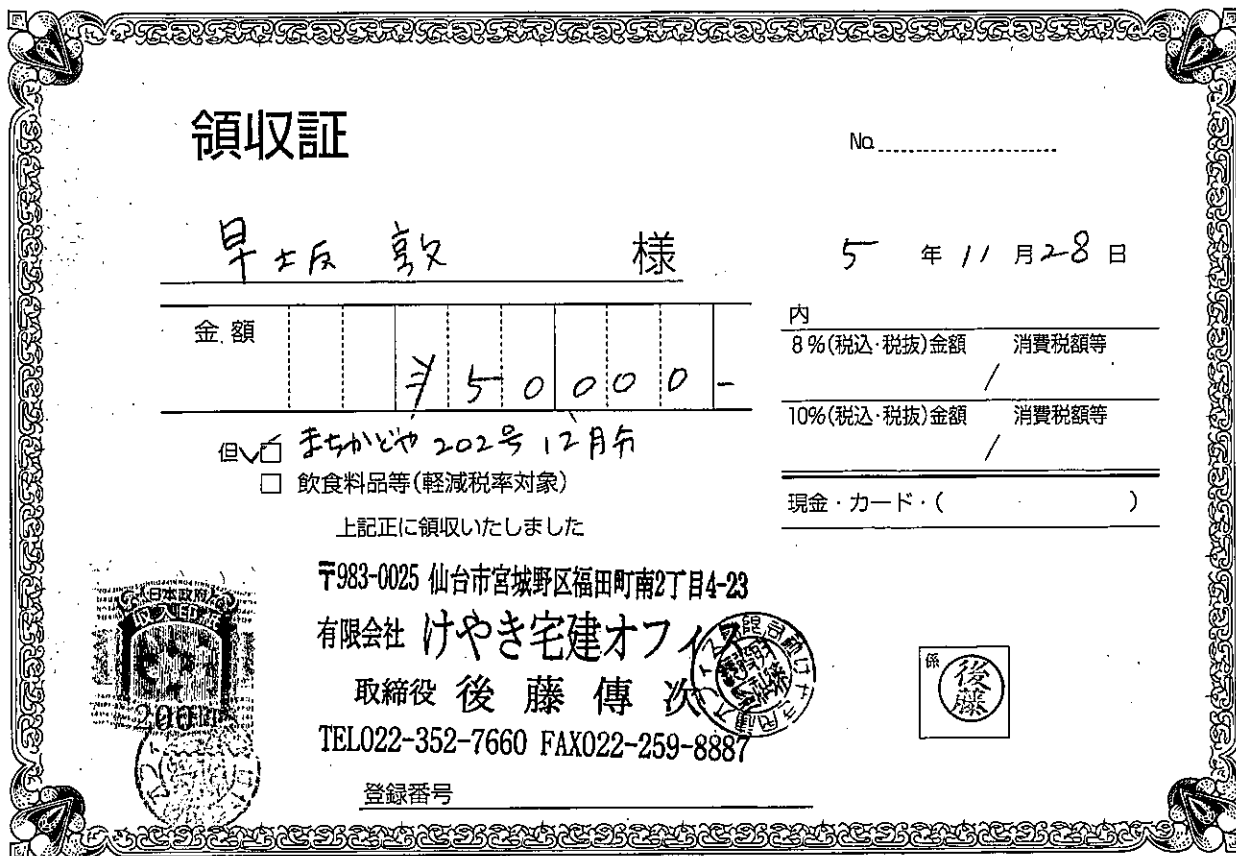 領収証
No.
早坂 敦 様
5 年 11 月 28 日
金額 ¥50000-
但 ✓□ まちかどや 202号 12月分
□ 飲食料品等(軽減税率対象)
上記正に領収いたしました
内
8%(税込・税抜)金額 / 消費税額等
10%(税込・税抜)金額 / 消費税額等
現金・カード・( )
日本政府
収入印紙
200円
〒983-0025 仙台市宮城野区福田町南2丁目4-23
有限会社 けやき宅建オフィス
取締役 後藤傳次
TEL022-352-7660 FAX022-259-8887
係 後藤
登録番号